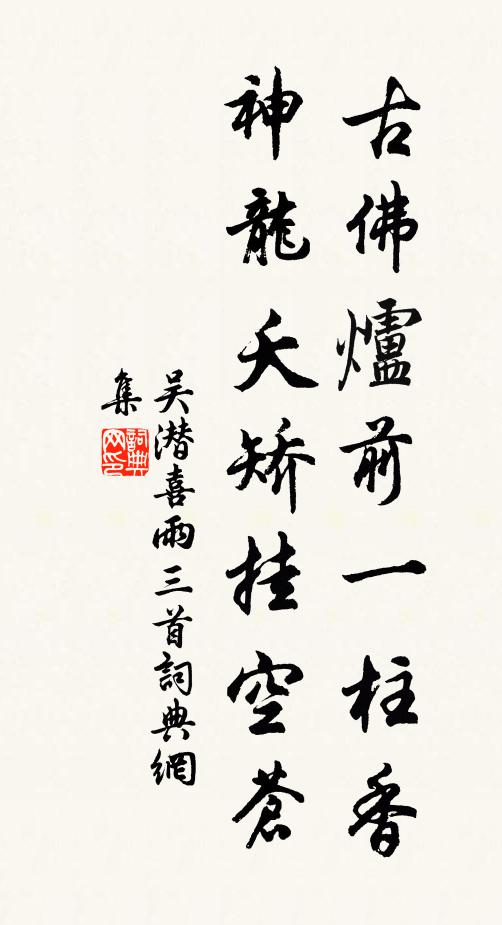 古佛爐前一柱香
神龍夭矯挂空蒼
吴潛喜雨三首詞典網
集
詞典网印